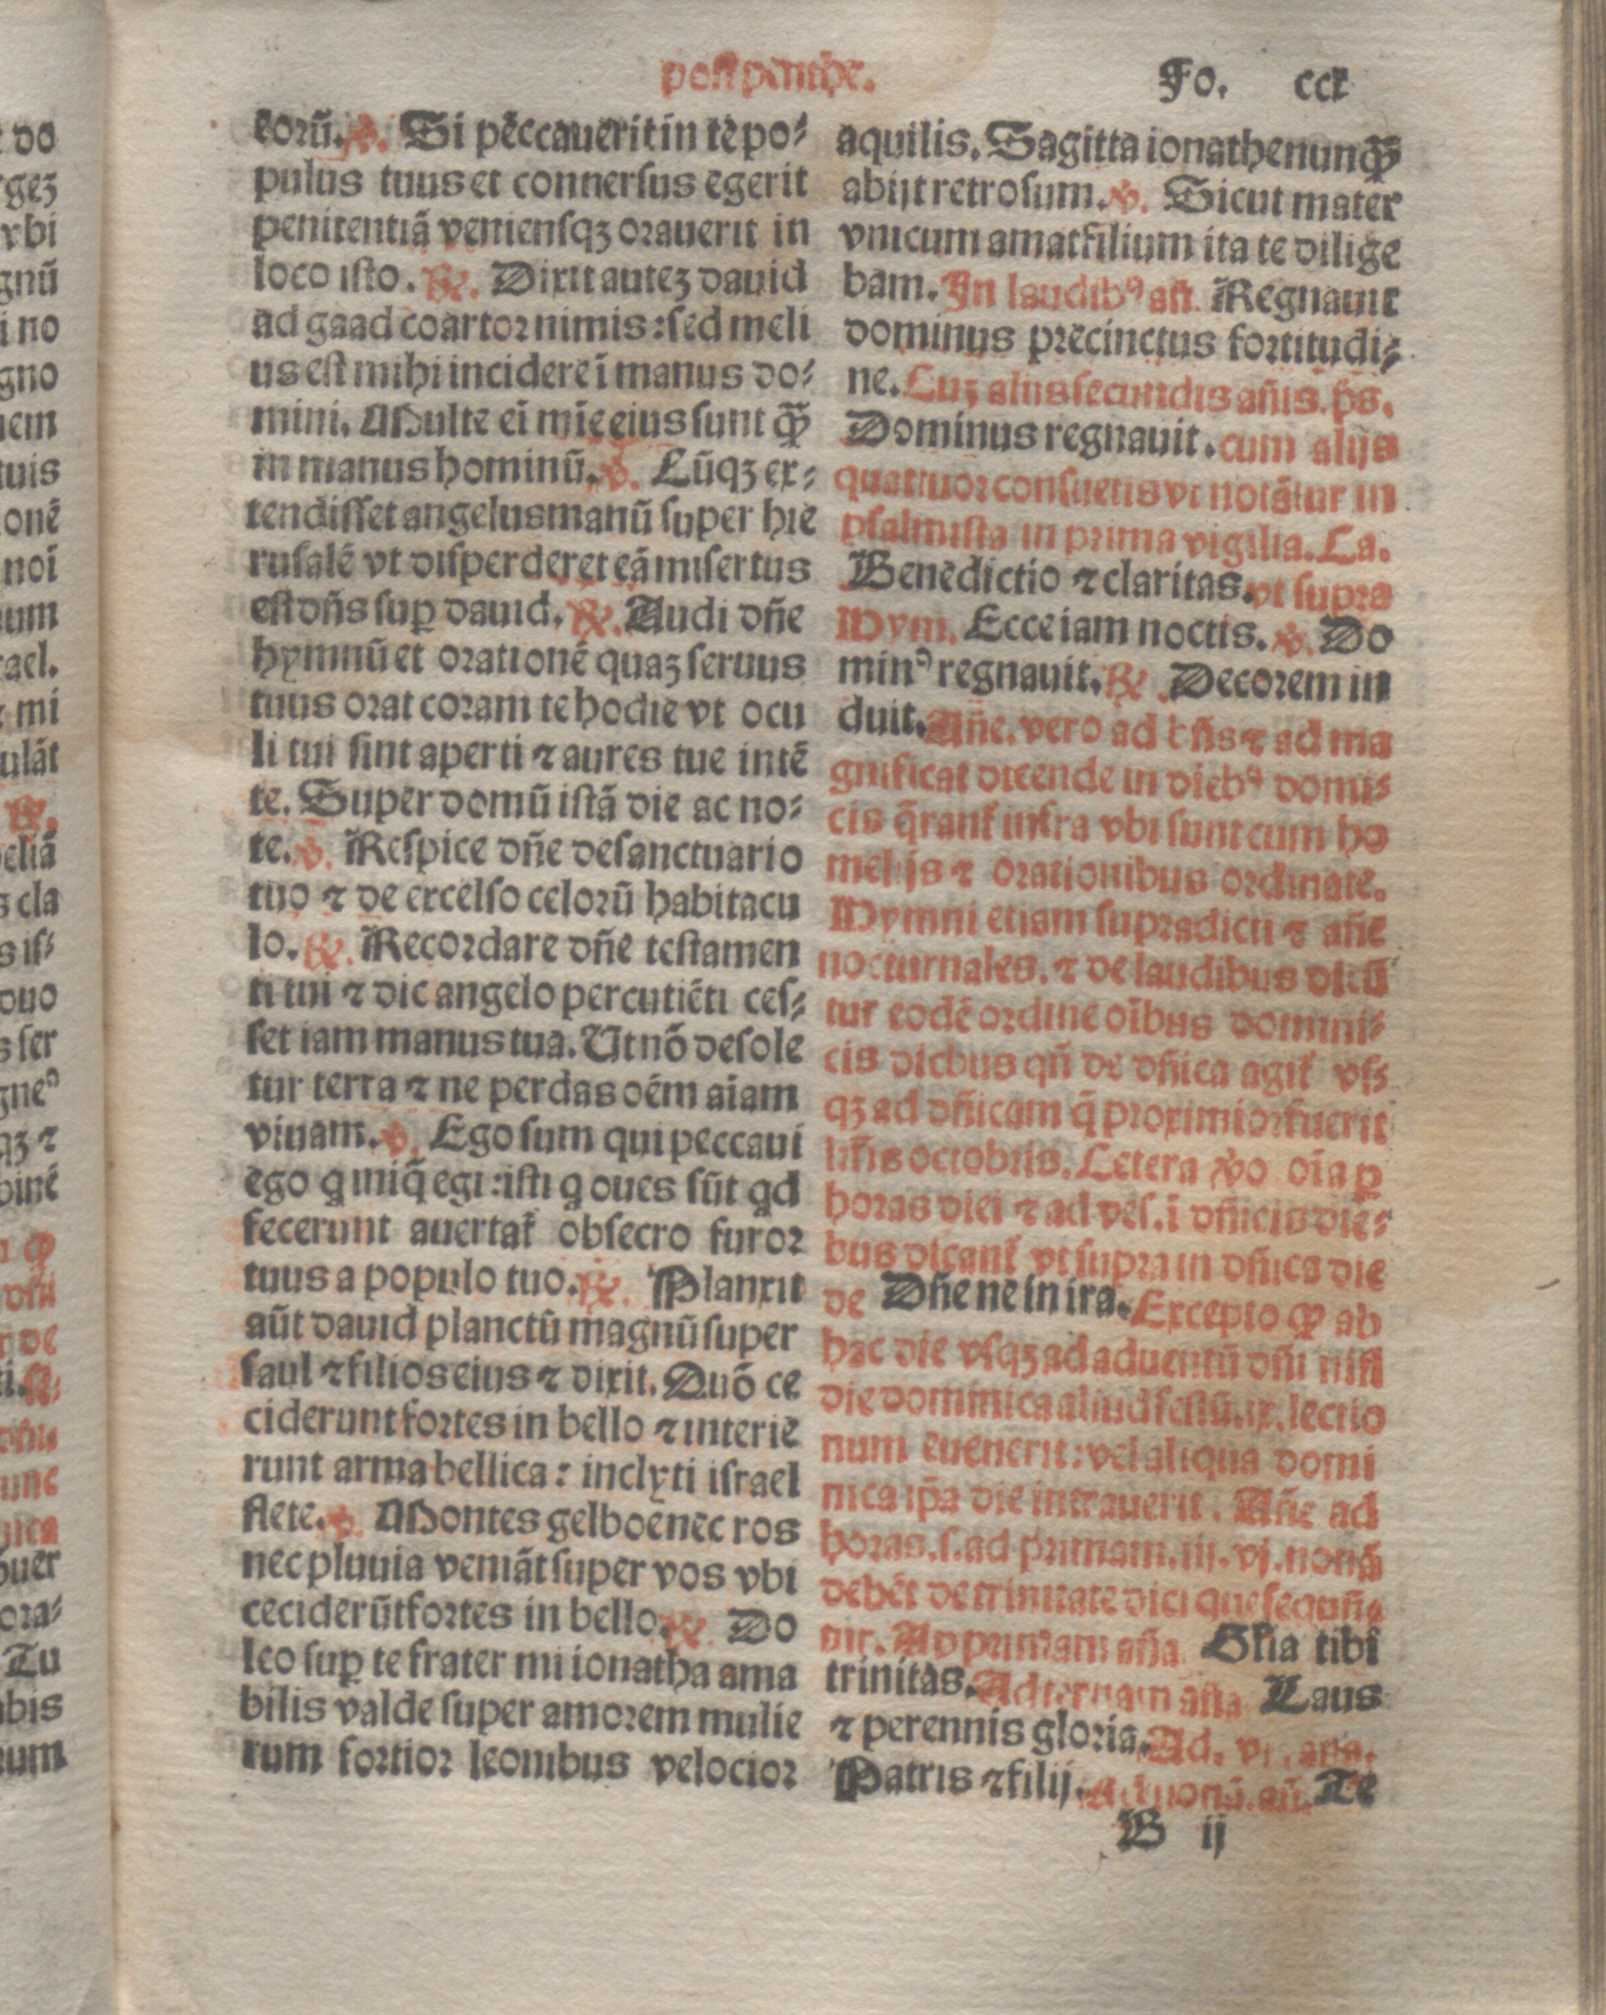 post penthe.
Fo. ccx
eorū. ℣. Si peccauerit in te po⸗
pulus tuus et conuersus egerit
penitentiā veniensqȝ orauerit in
loco isto. ℟. Dixit auteȝ dauid
ad gaad coartor nimis: sed meli
us est mihi incidere ī manus do⸗
mini. Multe eī mīe eius sunt qꝫ̄
in manus hominū. ℣. Cūqȝ ex⸗
tendisset angelus manū super hie
rusalē vt disperderet eā misertus
est dn̄s suꝑ dauid. ℟. Audi dn̄e
hymnū et orationē quaȝ seruus
tuus orat coram te hodie vt ocu
li tui sint aperti ⁊ aures tue intē
te. Super domū istā die ac no⸗
te. ℣. Respice dn̄e de sanctuario
tuo ⁊ de excelso celorū habitacu
lo. ℟. Recordare dn̄e testamen
ti tui ⁊ dic angelo percutiēti ces⸗
set iam manus tua. Ut nō desole
tur terra ⁊ ne perdas oēm aīam
viuam. ℣. Ego sum qui peccaui
ego q̄ iniq̄ egi: isti q̄ oues sūt qd
fecerunt auertat̄ obsecro furor
tuus a populo tuo. ℟. Planxit
aūt dauid planctū magnū super
saul ⁊ filios eius ⁊ dixit. Quō ce
ciderunt fortes in bello ⁊ interie
runt arma bellica: inclyti israel
flete. ℣. Montes gelboe nec ros
nec pluuia veniāt super vos vbi
ceciderūt fortes in bello. ℟. Do
leo suꝑ te frater mi ionatha ama
bilis valde super amorem mulie
rum fortior leonibus velocior
aquilis. Sagitta ionathe nunqꝫ̄
abijt retrosum. ℣. Sicut mater
vnicum amat filium ita te dilige
bam. In laudibꝰ añ. Regnauit
dominus precinctus fortitudi⸗
ne. Cuȝ alijs secundis añis. ps̄.
Dominus regnauit. cum alijs
quattuor consuetis vt notātur in
psalmista in prima vigilia. Ca.
Benedictio ⁊ claritas. vt supra
Hym. Ecce iam noctis. ℣. Do
minꝰ regnauit. ℟. Decorem in
duit. Añe. vero ad bn̄s ⁊ ad ma
gnificat dicende in diebꝰ domi⸗
cis q̄rant̄ infra vbi sunt cum ho
melijs ⁊ orationibus ordinate.
Hymni etiam supradicti ⁊ añe
nocturnales. ⁊ de laudibus dicū
tur eodē ordine oībus domini⸗
cis diebus qn̄ de dn̄ica agit̄ vs⸗
qȝ ad dn̄icam q̄ proximior fuerit
kl̄ns octobris. Cetera v̄o oīa ꝑ
horas diei ⁊ ad ves. ī dn̄icis die⸗
bus dicant̄ vt supra in dn̄ica die
de Dn̄e ne in ira. Excepto qꝫ ab
hac die vsqȝ ad aduentū dn̄i nisi
die dominica aliud festū. ix. lectio
num euenerit: vel aliqua domi
nica ip̄a die intrauerit. Añe ad
horas. s. ad primam. iij. vj. nonā
debēt de trinitate dici que sequn̄
tur. Ad primam añа Glīa tibi
trinitas. Ad tertiam añа Laus
⁊ perennis gloria. Ad. vj. aña.
Patris ⁊ filij. Ad nonā. añ. Te
B ij